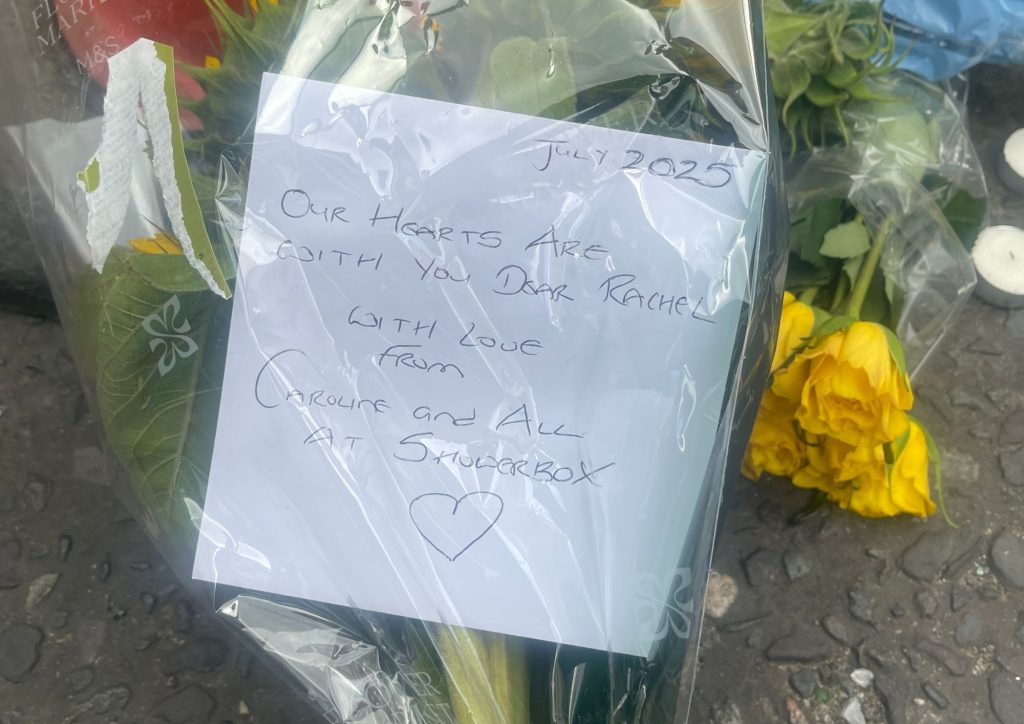 FLO
MARK
AT
M&S
JULY 2025
OUR HEARTS ARE
WITH YOU DEAR RACHEL
WITH LOVE
FROM
CAROLINE and ALL
AT SHOWERBOX